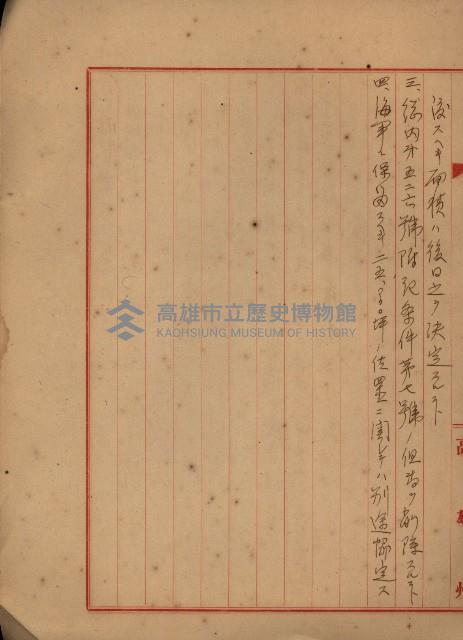 渡スヘキ面積ハ後日之ヲ決定スルコト
三、総内第五二六號附記条件第七號ノ但書ヲ削除スルコト
四、海軍ニ保留スヘキ二五、〇〇〇坪ノ位置ニ関シテハ別途協定ス
高雄州
高雄市立歷史博物館
KAOHSIUNG MUSEUM OF HISTORY